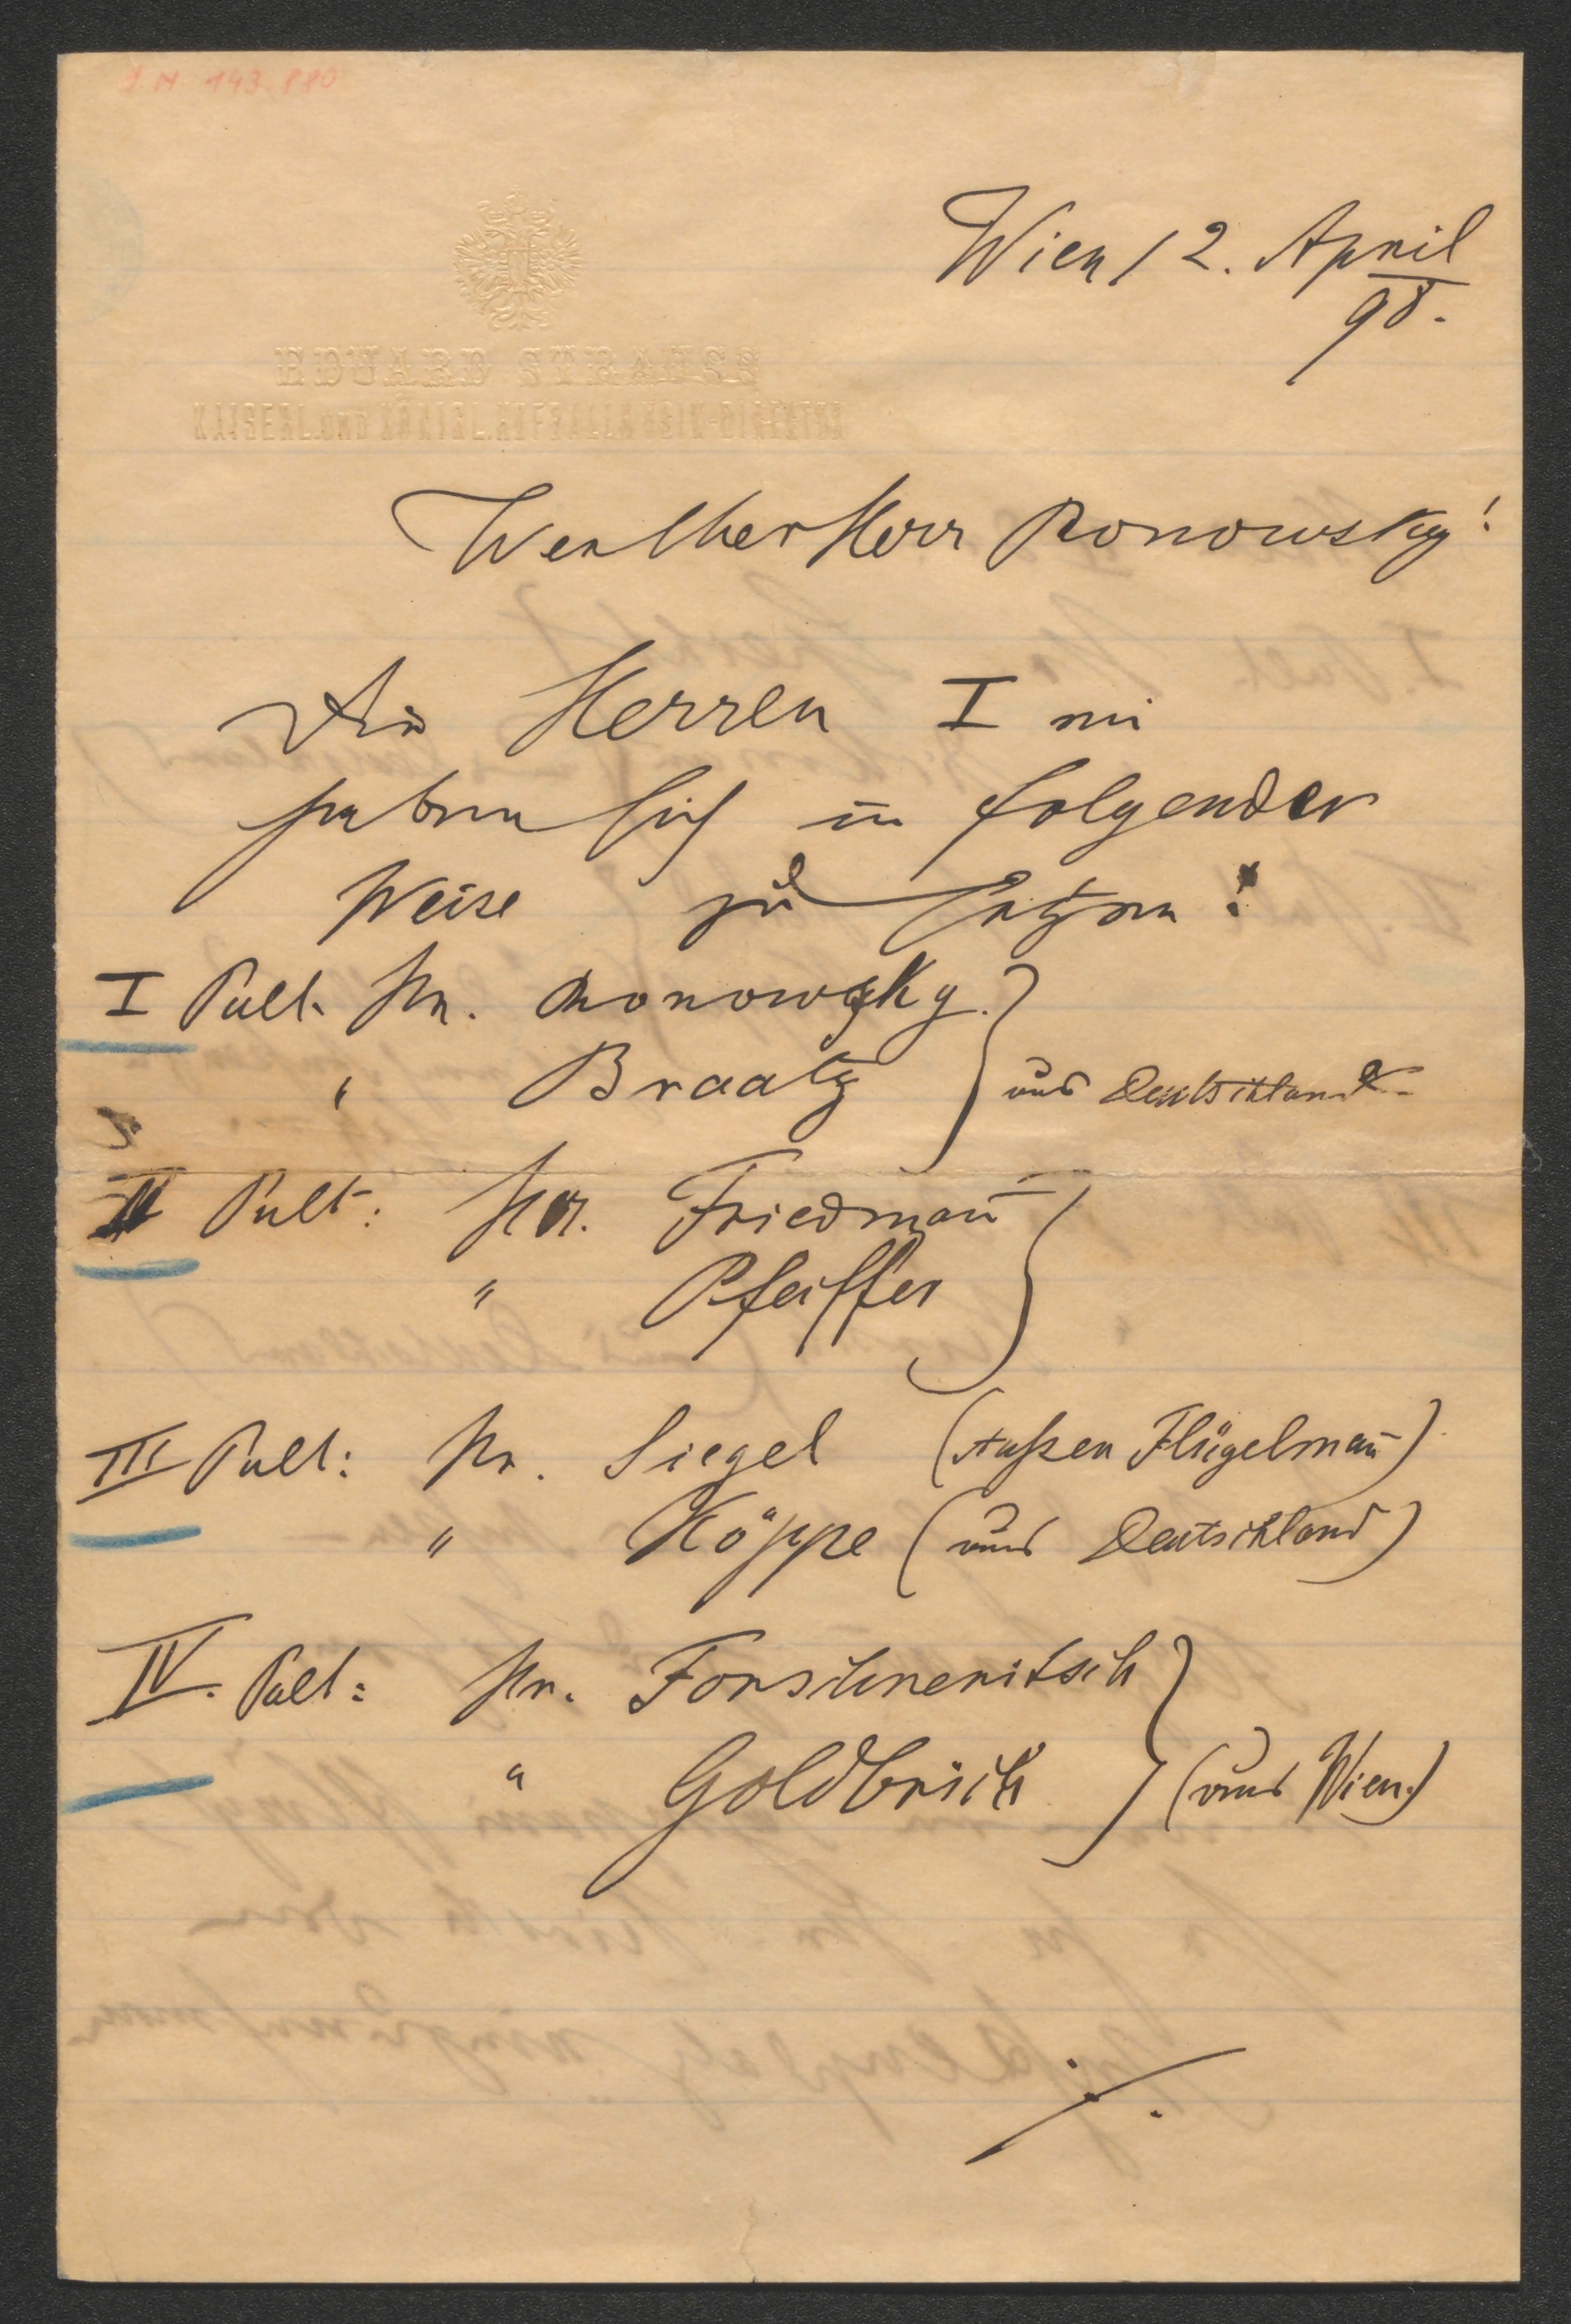 I.N. 143.880
Wien, 2. April
98.
EDUARD STRAUSS
KAISERL. UND KÖNIGL. HOFBALLMUSIK-DIREKTOR
Werther Herr Ronowsky!
Die Herren I mi
haben sich in folgender
Weise zu setzen:
I Pult. Hr. Ronowsky.
" Braatz } aus Deutschland
II Pult: Hr. Friedmañ
" Pfeiffer
III Pult: Hr. Siegel (Außen Flügelmañ)
" Köppe (aus Deutschland)
IV. Pult: Hr. Forschneritsch
" Goldbrich } (aus Wien.)